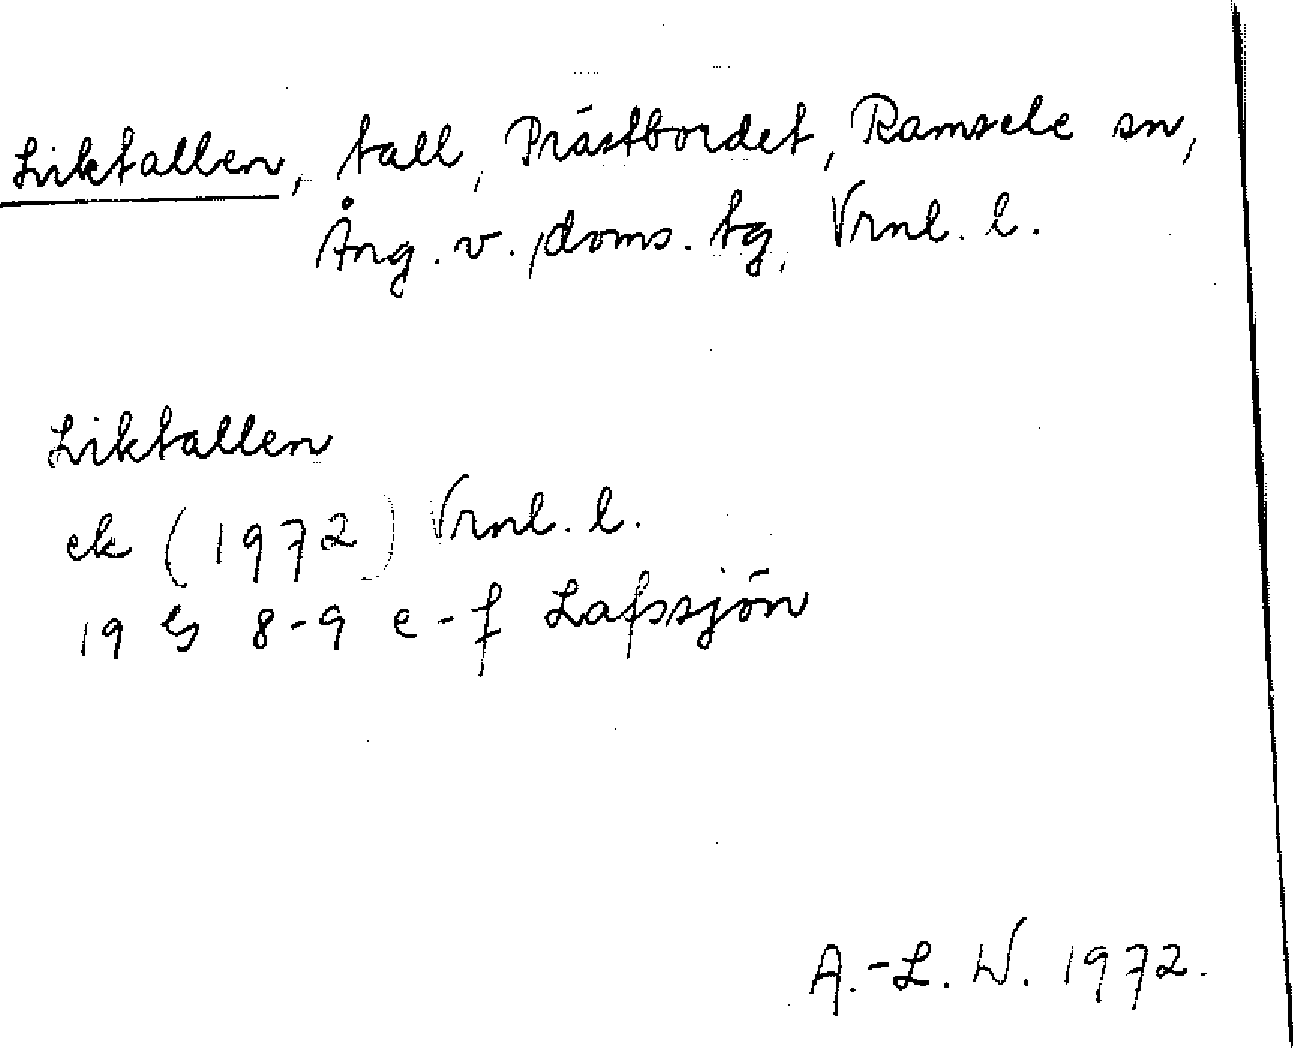 Liktallen, tall, Prästbordet, Ramsele sn,
Ång. v. doms. tg, Vrnl. l.
Liktallen
ek (1972) Vrnl. l.
19 G 8-9 e-f Lafssjön
A.-L. W. 1972.